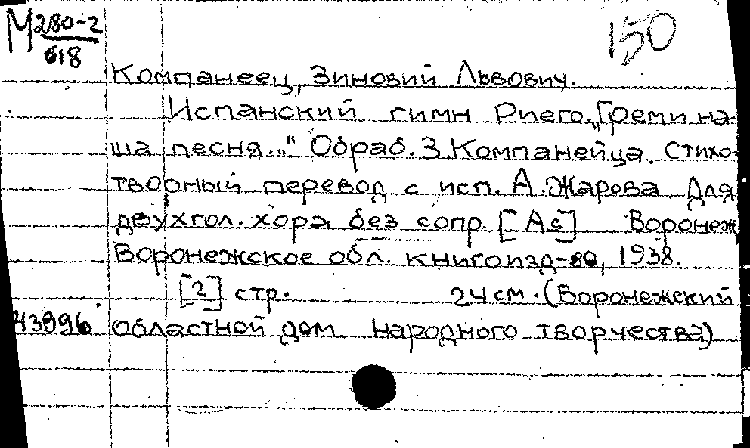 М 280-2
618
150
Компанеец, Зиновий Львович.
Испанский гимн Риего. „Греми на-
ша песня..." Обраб. З. Компанейца. Стихо-
творный перевод с исп. А. Жарова Для
двухгол. хора без сопр. [As] Воронеж
Воронежское обл. книгоизд-во, 1938.
[2] стр. 24 см. (Воронежский
43996 областной дом народного творчества)